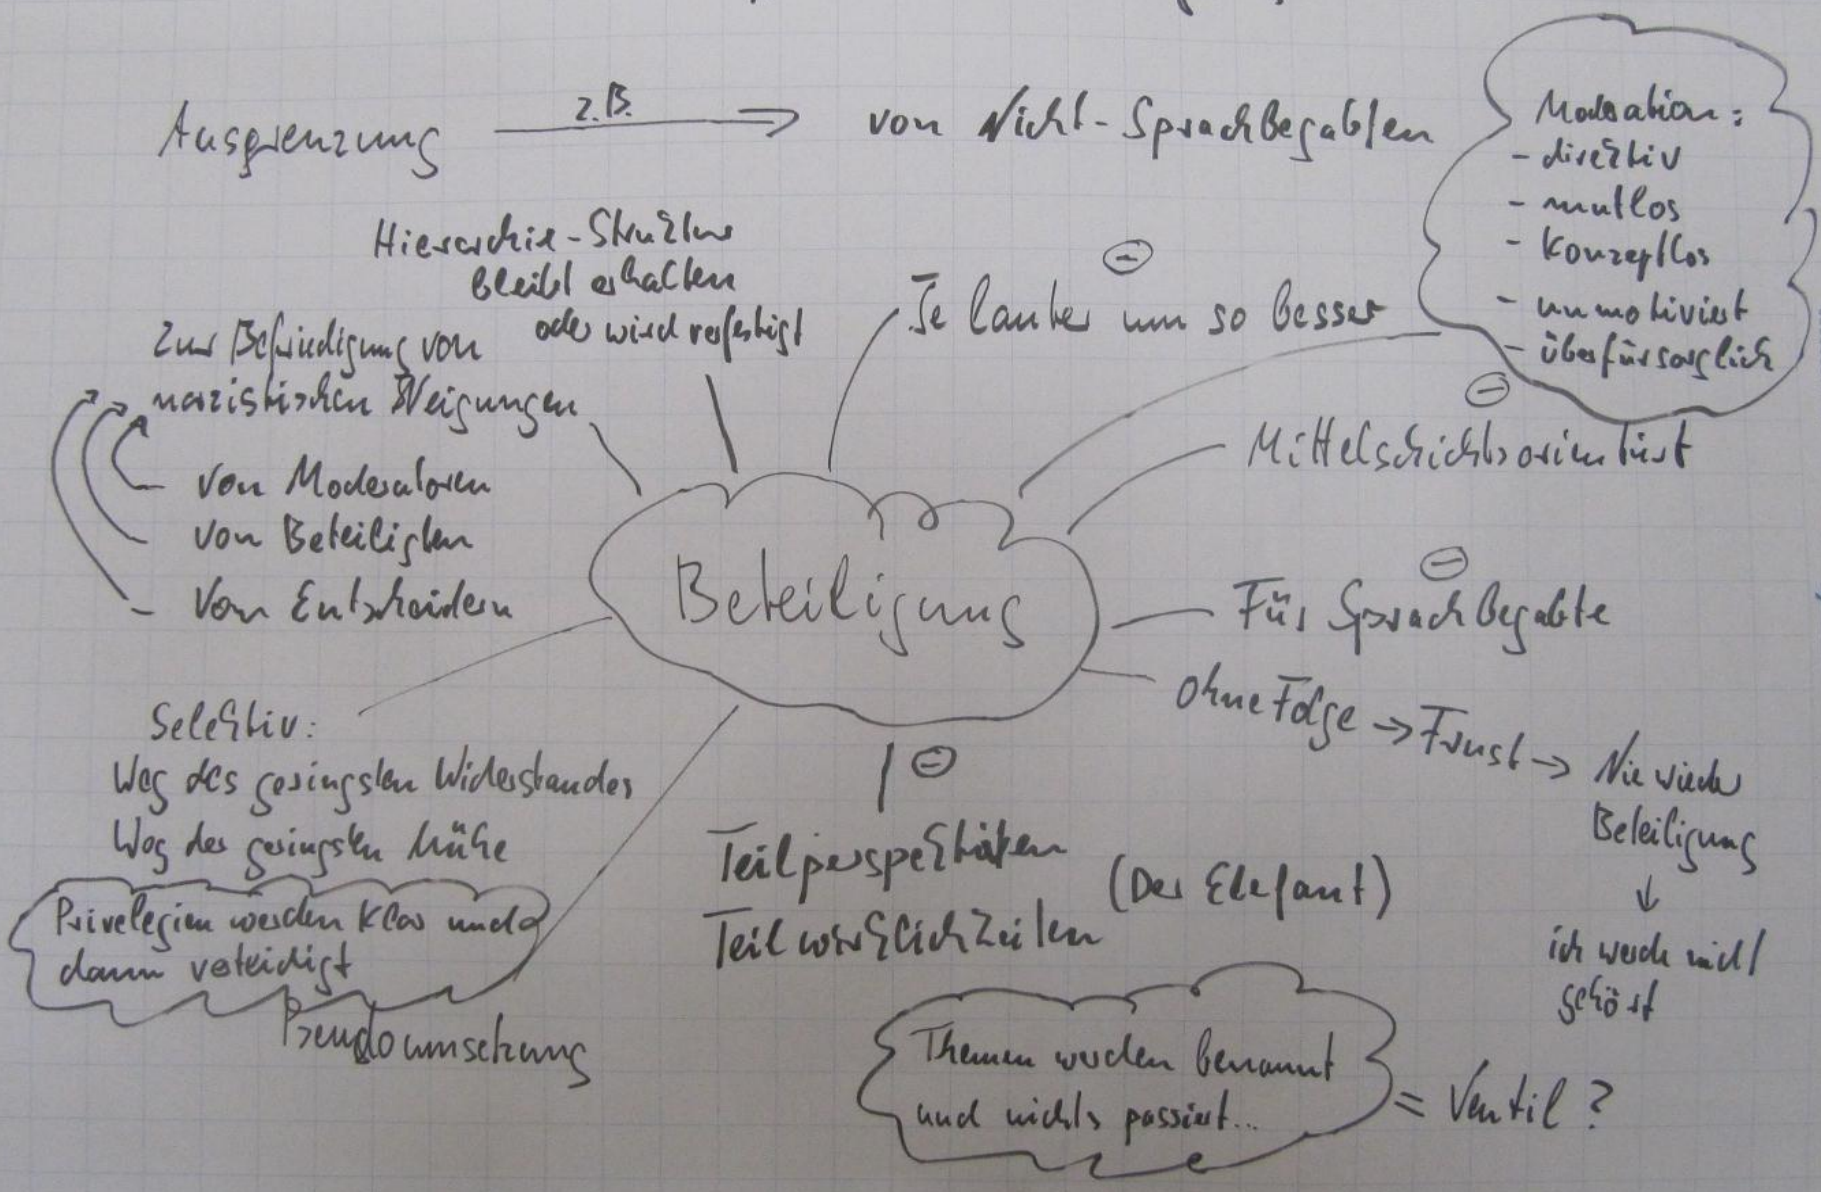 Ausgrenzung
z.B.
von Nicht-Sprachbegabten
Moderation:
- direktiv
- mutlos
- Konzeptlos
- unmotiviert
- überfürsorglich
Hierarchie-Struktur
bleibt erhalten
oder wird verfestigt
Je lauter um so besser
Zur Befriedigung von
narzistischen Neigungen
von Moderatoren
von Beteiligten
von Entscheidern
Mittelschichtsorientiert
Beteiligung
Für Sprachbegabte
ohne Folge → Frust →
Nie wieder
Beteiligung
↓
ich werde nicht
gehört
Selektiv:
Weg des geringsten Widerstandes
Weg der geringsten Mühe
Privelegien werden klar und
dann veteidigt
Pseudoumsetzung
Teilperspektiven
Teilwirklichkeiten
(Der Elefant)
Themen werden benannt
und nichts passiert...
= Ventil?